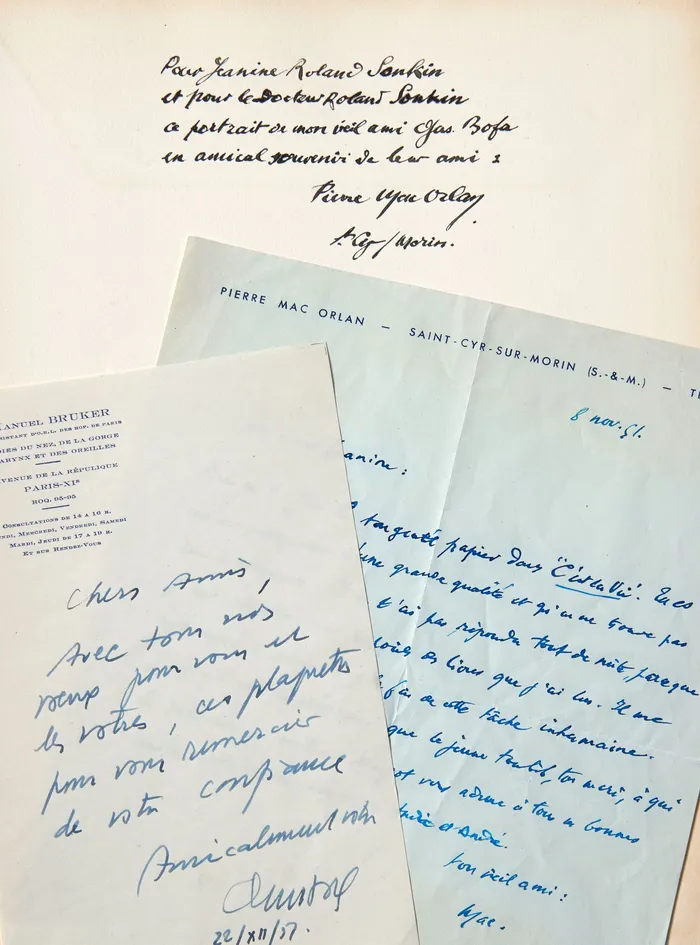 Pour Jeanine Roland Sonkin
et pour le Docteur Roland Sonkin
ce portrait de mon vieil ami Gus. Bofa
en amical souvenir de leur ami :
Pierre Mac Orlan
St Cyr / Morin.
PIERRE MAC ORLAN — SAINT-CYR-SUR-MORIN (S.-&-M.) — TÉ
8 nov. 51.
anine :
ton gentil papier dans "C'est la Vie". Tu es
une grande qualité et qui ne trouve pas
t'ai pas répondu tout de suite, parce que
livres que j'ai lus. Il me
de cette tâche inhumaine.
que le jeune toubib, ton mari, à qui
vous adresse à tous
et André.
ton vieil ami :
Mac.
MANUEL BRUKER
SISTANT D'O.R.L. DES HOP. DE PARIS
DIES DU NEZ, DE LA GORGE
ARYNX ET DES OREILLES
VENUE DE LA RÉPULIQUE
PARIS-XIe
ROQ. 05-05
CONSULTATIONS DE 14 A 16 H.
UNDI, MERCREDI, VENDREDI, SAMEDI
MARDI, JEUDI DE 17 A 19 H.
ET SUR RENDEZ-VOUS
Chers Amis,
Avec tous nos
voeux pour vous et
les votres, ces plaquettes
pour vous remercier
de votre confiance
Amicalement votre
22/XII/57.